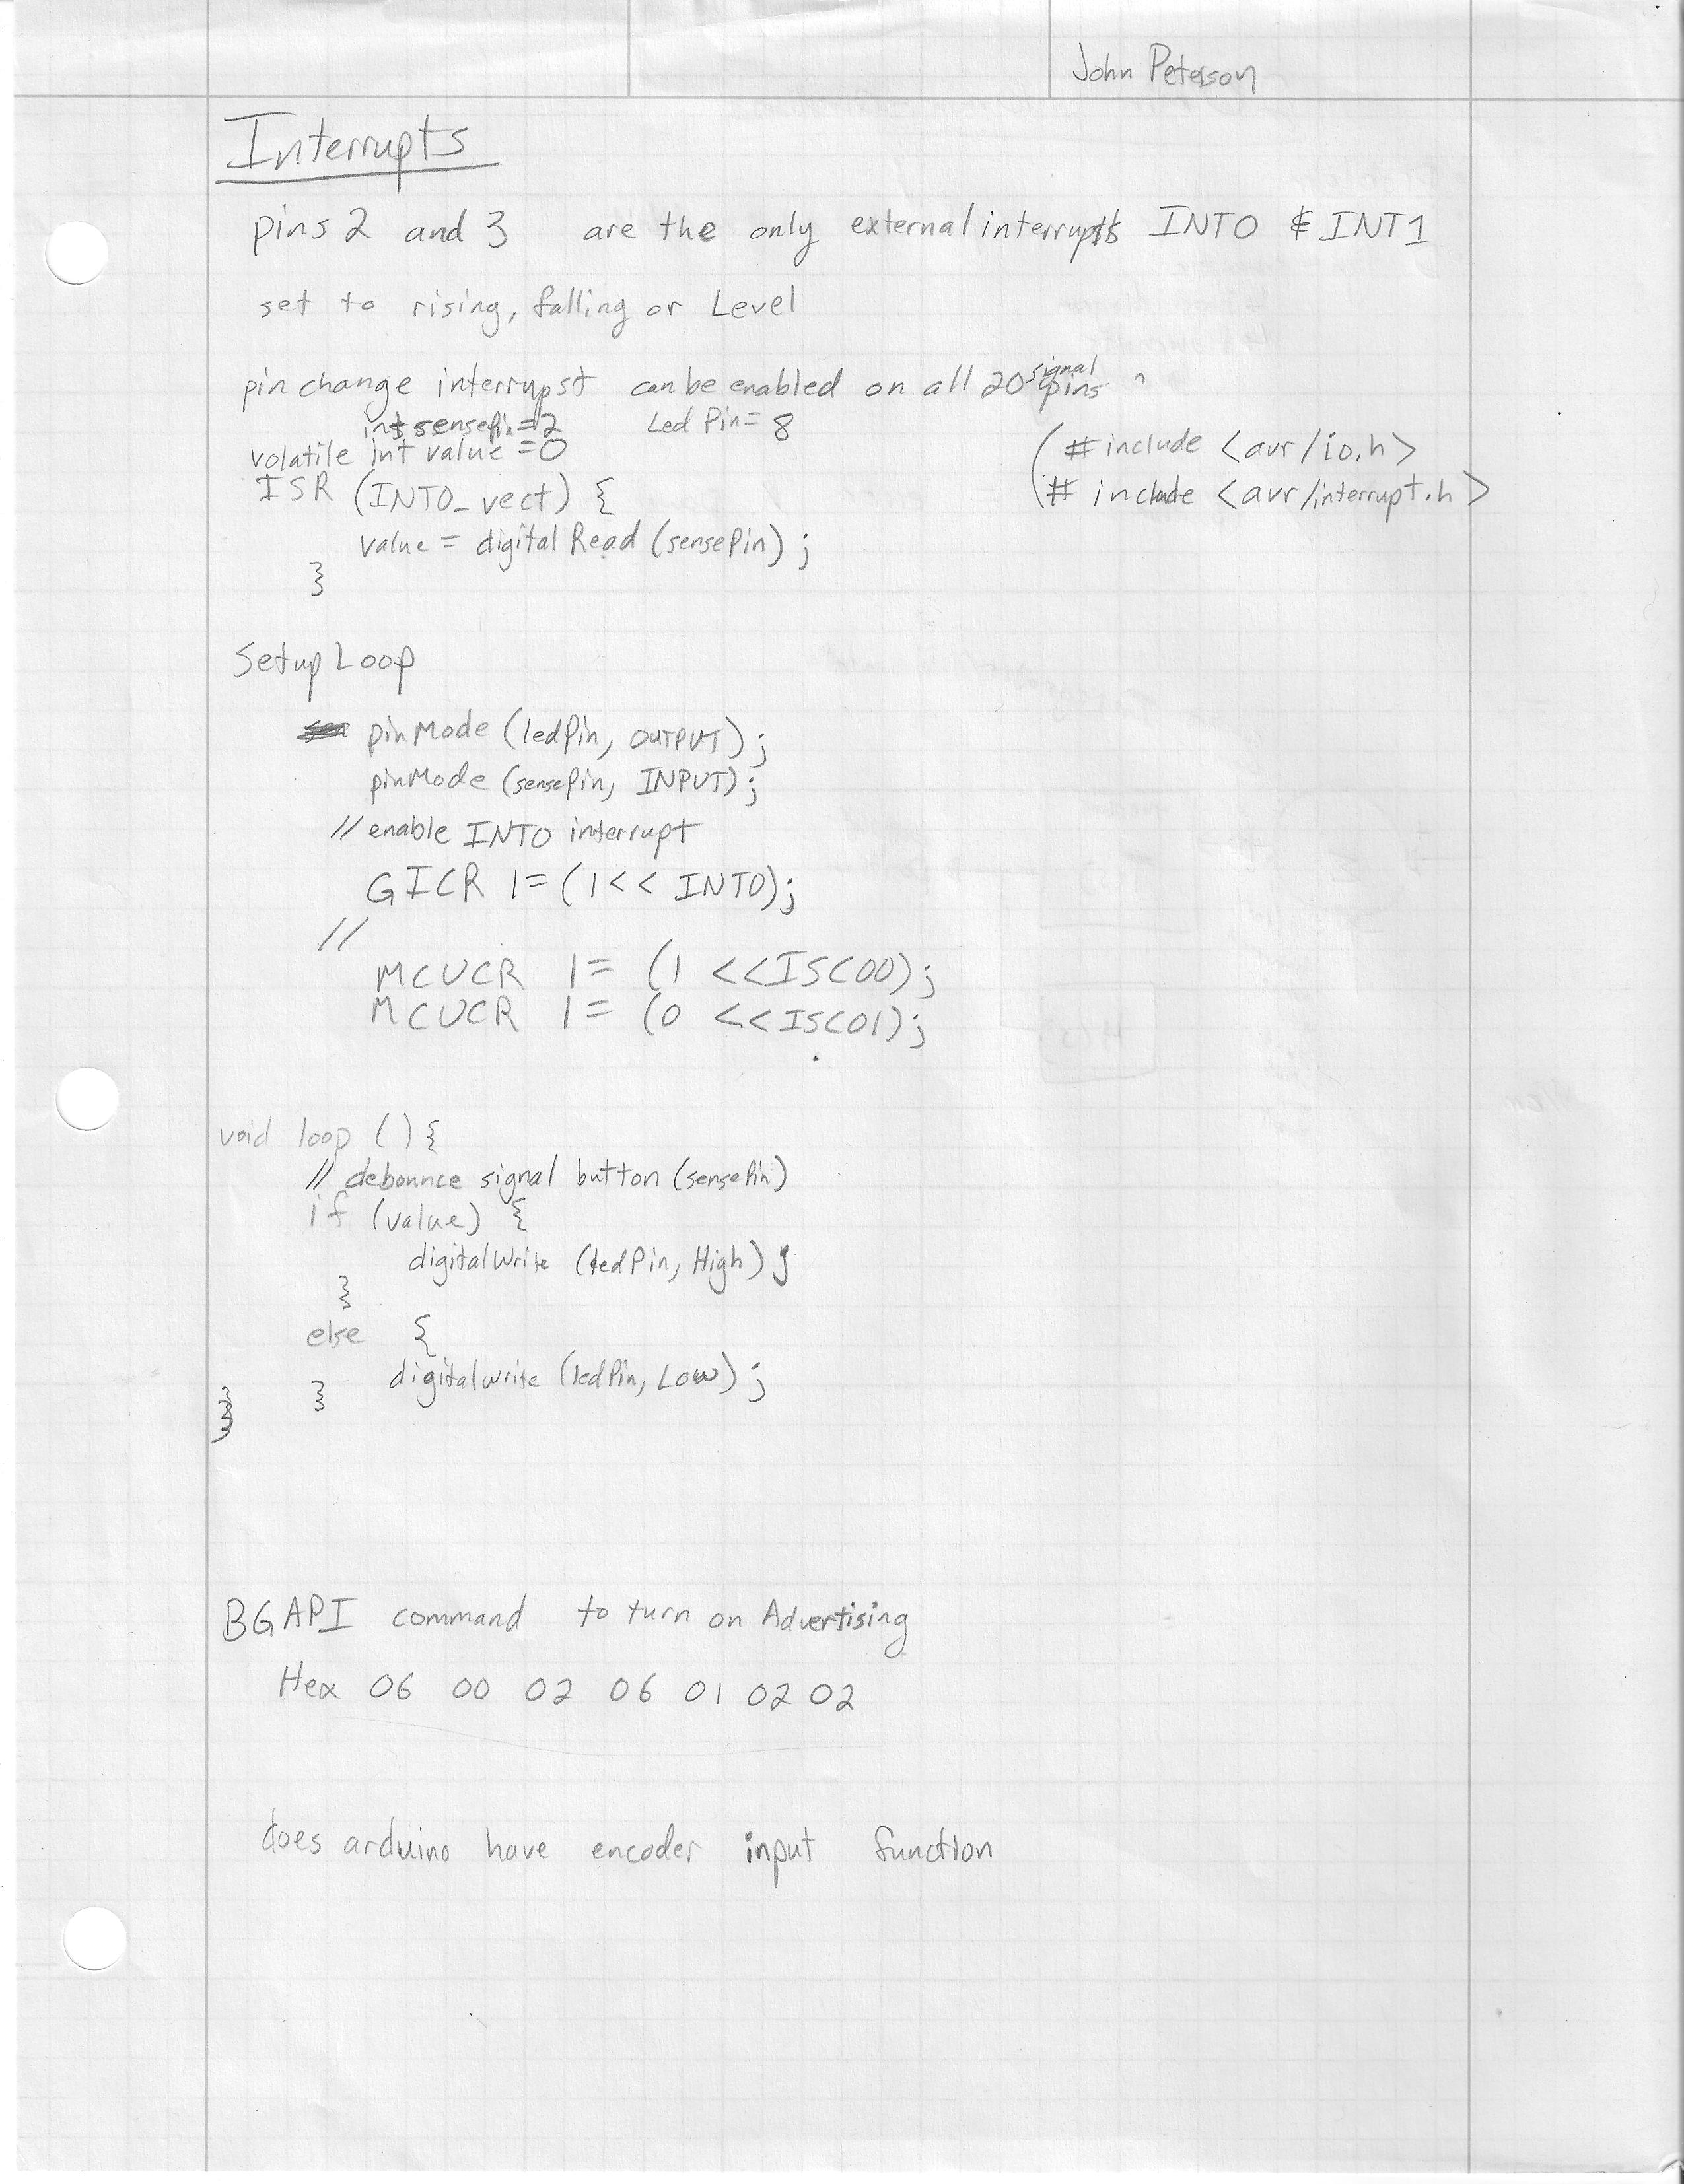 John Peterson
Interrupts
pins 2 and 3 are the only external interrupts INT0 & INT1
set to rising, falling or Level
pin change interrupst can be enabled on all 20 signal pins
int sensePin = 2 Led Pin = 8
volatile int value = 0
(# include <avr/io.h>
ISR (INT0_vect) {
(# include <avr/interrupt.h>
value = digital Read (sensePin) ;
}
Setup Loop
pinMode (ledPin, OUTPUT) ;
pinMode (sensePin, INPUT) ;
// enable INT0 interrupt
GICR |= (1<< INT0);
//
MCUCR |= (1 <<ISC00);
MCUCR |= (0 <<ISC01);
void loop () {
// debounce signal button (sensePin)
if (value) {
digitalwrite (ledPin, High) ;
}
else {
digitalwrite (ledPin, Low) ;
}
}
BGAPI command to turn on Advertising
Hex 06 00 02 06 01 02 02
does arduino have encoder input function